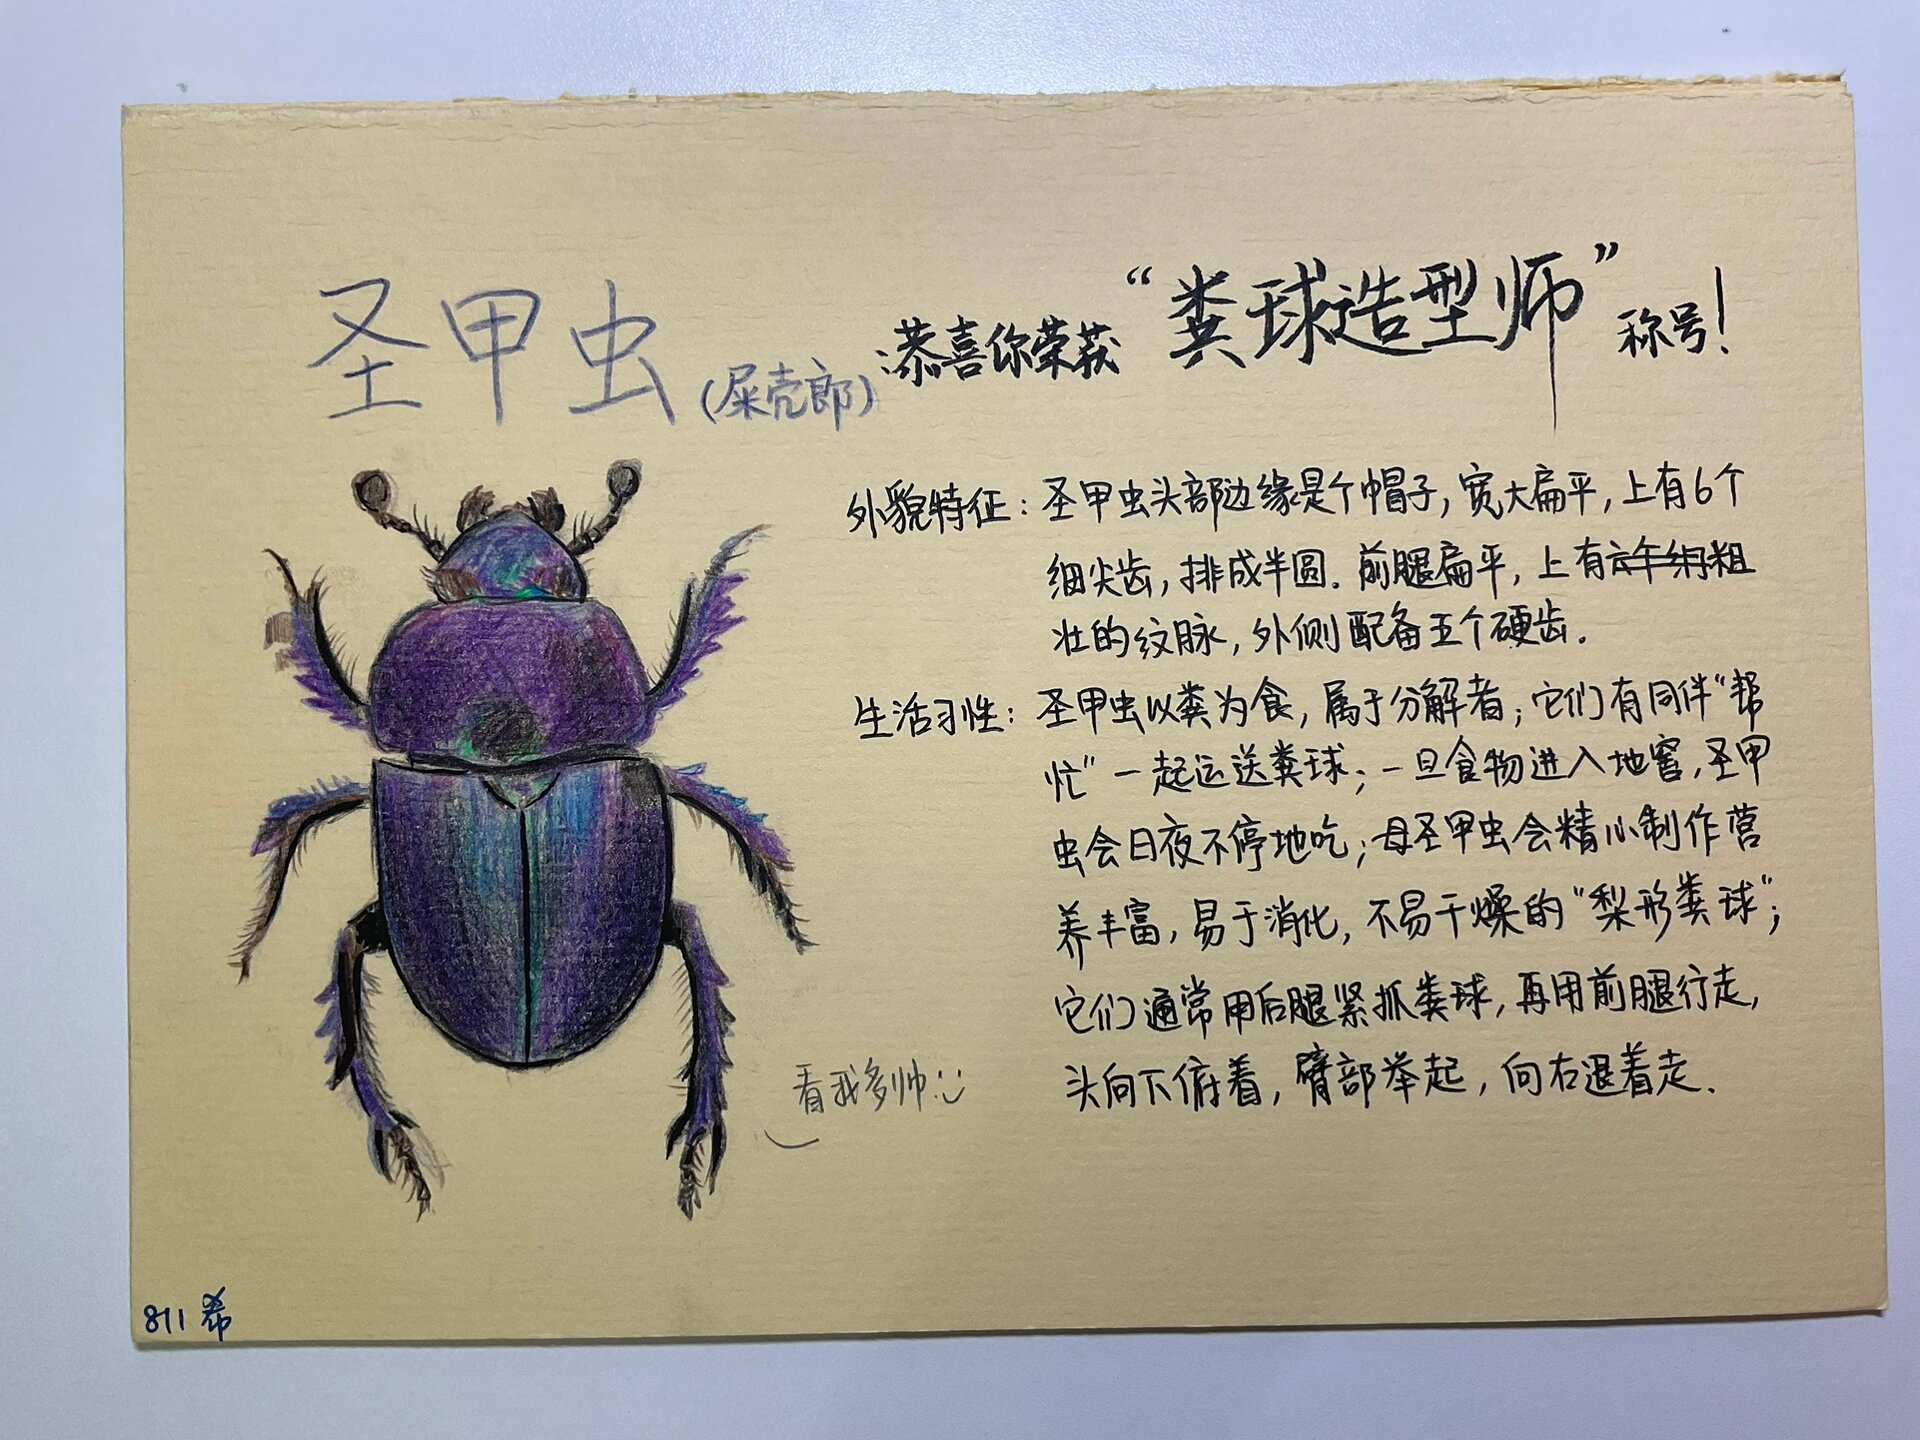 圣甲虫(屎壳郎):恭喜你荣获“粪球造型师”称号!
外貌特征:圣甲虫头部边缘是个帽子,宽大扁平,上有6个
细尖齿,排成半圆.前腿扁平,上有粗
壮的纹脉,外侧配备五个硬齿.
生活习性:圣甲虫以粪为食,属于分解者;它们有同伴“帮
忙”一起运送粪球;一旦食物进入地窖,圣甲
虫会日夜不停地吃;母圣甲虫会精心制作营
养丰富,易于消化,不易干燥的“梨形粪球”;
它们通常用后腿紧抓粪球,再用前腿行走,
头向下俯着,臂部举起,向右退着走.
看我多帅
811 希